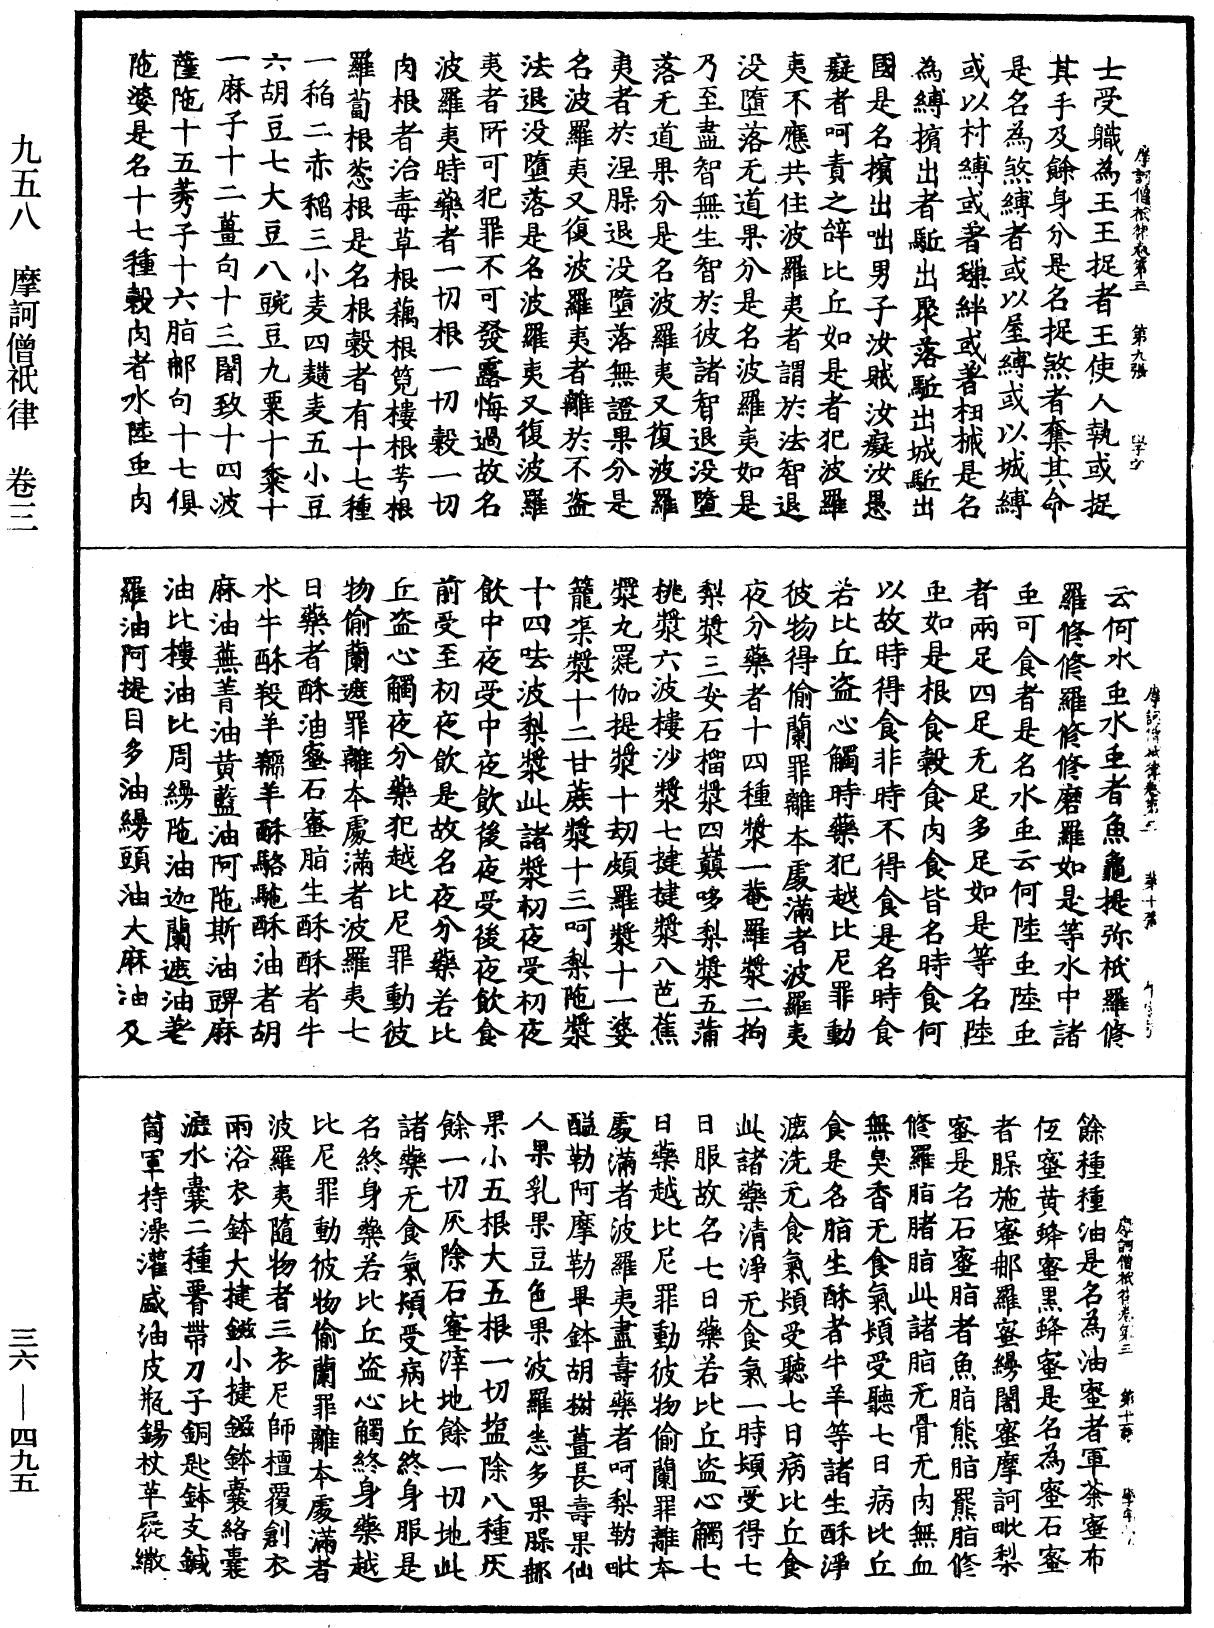 九五八　摩訶僧祇律　卷三
三六—四九五
摩訶僧祇律卷第三　第九張
士受職為王王捉者王使人執或捉
其手及餘身分是名捉煞者奪其命
是名為煞縛者或以屋縛或以城縛
或以村縛或著璅絆或著杻械是名
為縛擯出者駈出聚落駈出城駈出
國是名擯出咄男子汝賊汝癡汝愚
癡者呵責之辝比丘如是者犯波羅
夷不應共住波羅夷者謂於法智退
没墮落无道果分是名波羅夷如是
乃至盡智無生智於彼諸智退没墮
落无道果分是名波羅夷又復波羅
夷者於涅脲退没墮落無證果分是
名波羅夷又復波羅夷者離於不盗
法退没墮落是名波羅夷又復波羅
夷者所可犯罪不可發露悔過故名
波羅夷時藥者一切根一切穀一切
肉根者治毒草根藕根筧樓根芋根
羅蔔根葱根是名根穀者有十七種
一稻二赤稻三小麦四䵃麦五小豆
六胡豆七大豆八豌豆九粟十黍十
一麻子十二薑句十三闍致十四波
薩陁十五莠子十六脂郍句十七俱
陁婆是名十七種穀肉者水陸䖝肉
云何水䖝水䖝者魚龜提弥祇羅修
羅修修羅修修磨羅如是等水中諸
䖝可食者是名水䖝云何陸䖝陸䖝
者兩足四足无足多足如是等名陸
䖝如是根食穀食肉食皆名時食何
以故時得食非時不得食是名時食
若比丘盗心觸時藥犯越比尼罪動
彼物得偷蘭罪離本處滿者波羅夷
夜分藥者十四種漿一菴羅漿二拘
梨漿三安石榴漿四巔哆梨漿五蒲
桃漿六波樓沙漿七揵揵漿八芭蕉
漿九罷伽提漿十劫頗羅漿十一婆
籠渠漿十二甘蔗漿十三呵梨陁漿
十四呿波梨漿此諸漿初夜受初夜
飲中夜受中夜飲後夜受後夜飲食
前受至初夜飲是故名夜分藥若比
丘盗心觸夜分藥犯越比尼罪動彼
物偷蘭遮罪離本處滿者波羅夷七
日藥者酥油蜜石蜜脂生酥酥者牛
水牛酥羖羊𦏰羊酥駱駞酥油者胡
麻油蕪菁油黃藍油阿陁斯油䯗麻
油比樓油比周縵陁油迦蘭遮油差
羅油阿提目多油縵頭油大麻油及
摩訶僧祇律卷第三　第十一張
餘種種油是名為油蜜者軍荼蜜布
㐌蜜黃蜂蜜黑蜂蜜是名為蜜石蜜
者脲施蜜郍羅蜜縵闍蜜摩訶毗梨
蜜是名石蜜脂者魚脂熊脂羆脂修
修羅脂猪脂此諸脂无骨无肉無血
無臭香无食氣頓受聽七日病比丘
食是名脂生酥者牛羊等諸生酥淨
漉洗无食氣頓受聽七日病比丘食
此諸藥清淨无食氣一時頓受得七
日服故名七日藥若比丘盗心觸七
日藥越比尼罪動彼物偷蘭罪離本
處滿者波羅夷盡壽藥者呵梨勒毗
醯勒阿摩勒畢鉢胡樹薑長壽果仙
人果乳果豆色果波羅悉多果脲郍
果小五根大五根一切塩除八種灰
餘一切灰除石蜜滓地餘一切地此
諸藥无食氣頓受病比丘終身服是
名終身藥若比丘盗心觸終身藥越
比尼罪動彼物偷蘭罪離本處滿者
波羅夷隨物者三衣尼師檀覆創衣
兩浴衣鉢大揵鎡小揵鎡鉢囊絡囊
漉水囊二種䙅帶刀子銅匙鉢支鍼
筒軍持澡灌盛油皮瓶錫杖革屣繖